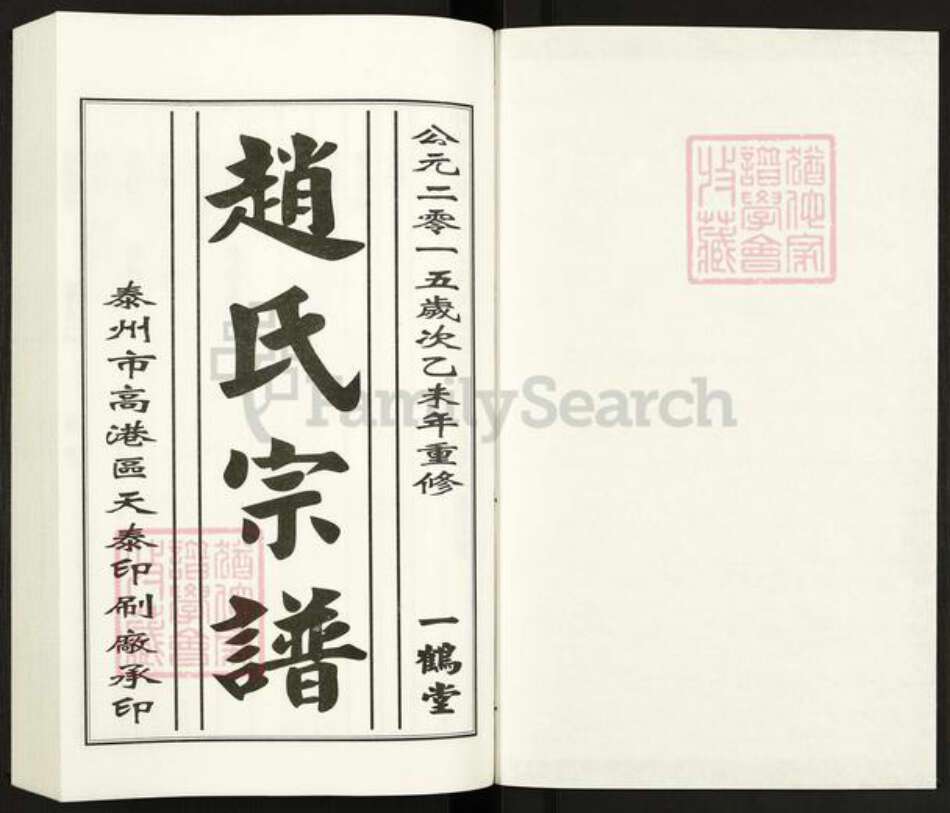 公元二零一五歲次乙未年重修
一鶴堂
趙氏宗譜
泰州市高港區天泰印刷廠承印
猶他家
譜學會
收藏
FamilySearch